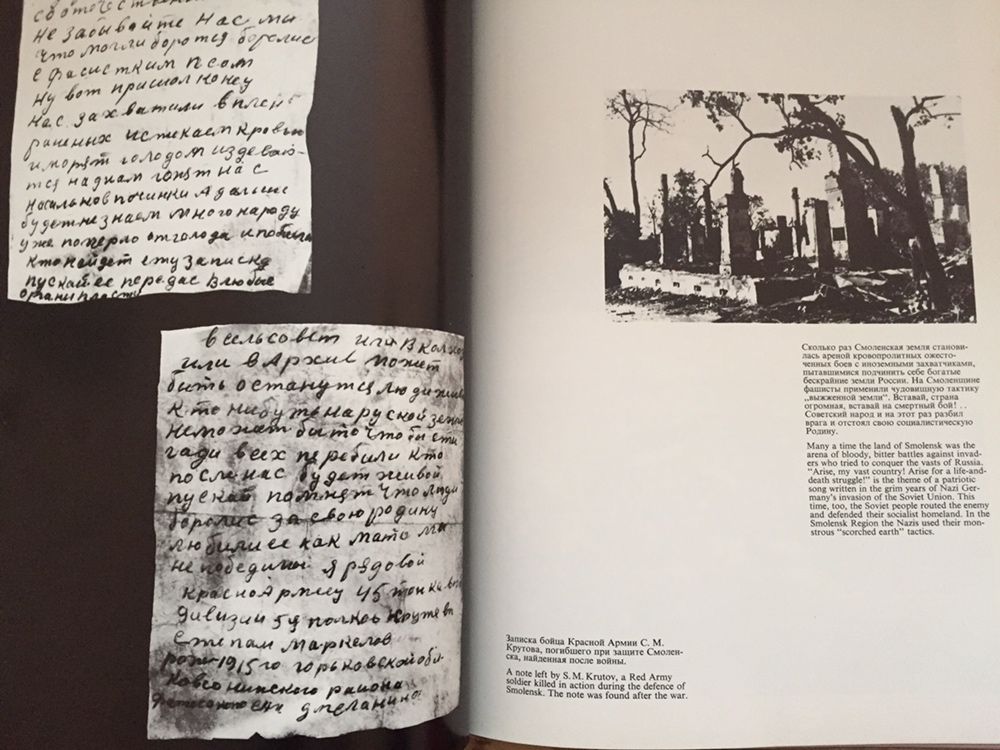 не забывайте нас мы
что могли боротся боролис
с фасистким псом
ну вот пришол конец
нас захватили в плен
раненых истекаем кровью
и морят голодом издеваю-
тся над нам гонят нас
а дальше
будет не знаем много народу
уже померло от голода и
кто найдет ету записку
пускай ее передас в любые
органи власти
в сельсовет или в колхоз
или в Архив может
быть останутся люди живы
кто нибуть на руской земле
неможет быто что би ети
гади всех перебили кто
после нас будет живой
пускай помнят что люди
боролис за свою родину
любили ее как мато мы
непобедимы я рядовой
красноАрмеец 45 танковой
дивизии 54 полка
степам Маркелов
рож-1915го горьковской обл.
района
Сколько раз Смоленская земля станови-
лась ареной кровопролитных ожесто-
ченных боев с иноземными захватчиками,
пытавшимися подчинить себе богатые
бескрайние земли России. На Смоленщине
фашисты применили чудовищную тактику
„выжженной земли". Вставай, страна
огромная, вставай на смертный бой! . .
Советский народ и на этот раз разбил
врага и отстоял свою социалистическую
Родину.
Many a time the land of Smolensk was the
arena of bloody, bitter battles against invad-
ers who tried to conquer the vasts of Russia.
"Arise, my vast country! Arise for a life-and-
death struggle!" is the theme of a patriotic
song written in the grim years of Nazi Ger-
many's invasion of the Soviet Union. This
time, too, the Soviet people routed the enemy
and defended their socialist homeland. In the
Smolensk Region the Nazis used their mon-
strous "scorched earth" tactics.
Записка бойца Красной Армии С. М.
Крутова, погибшего при защите Смолен-
ска, найденная после войны.
A note left by S. M. Krutov, a Red Army
soldier killed in action during the defence of
Smolensk. The note was found after the war.